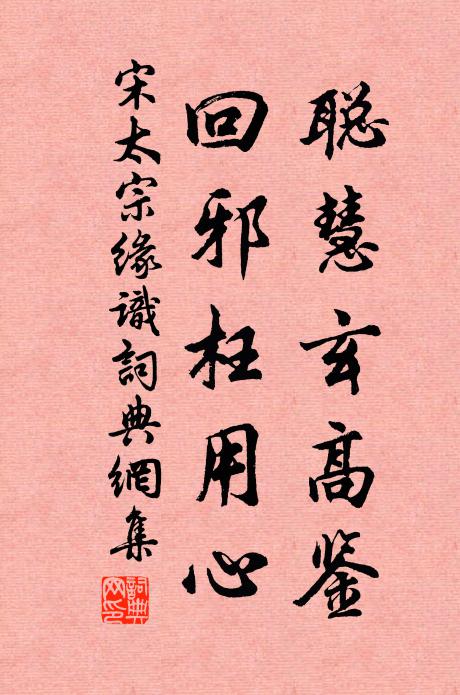 聪慧玄高鉴
回邪枉用心
宋太宗缘識詞典網集
詞典網印